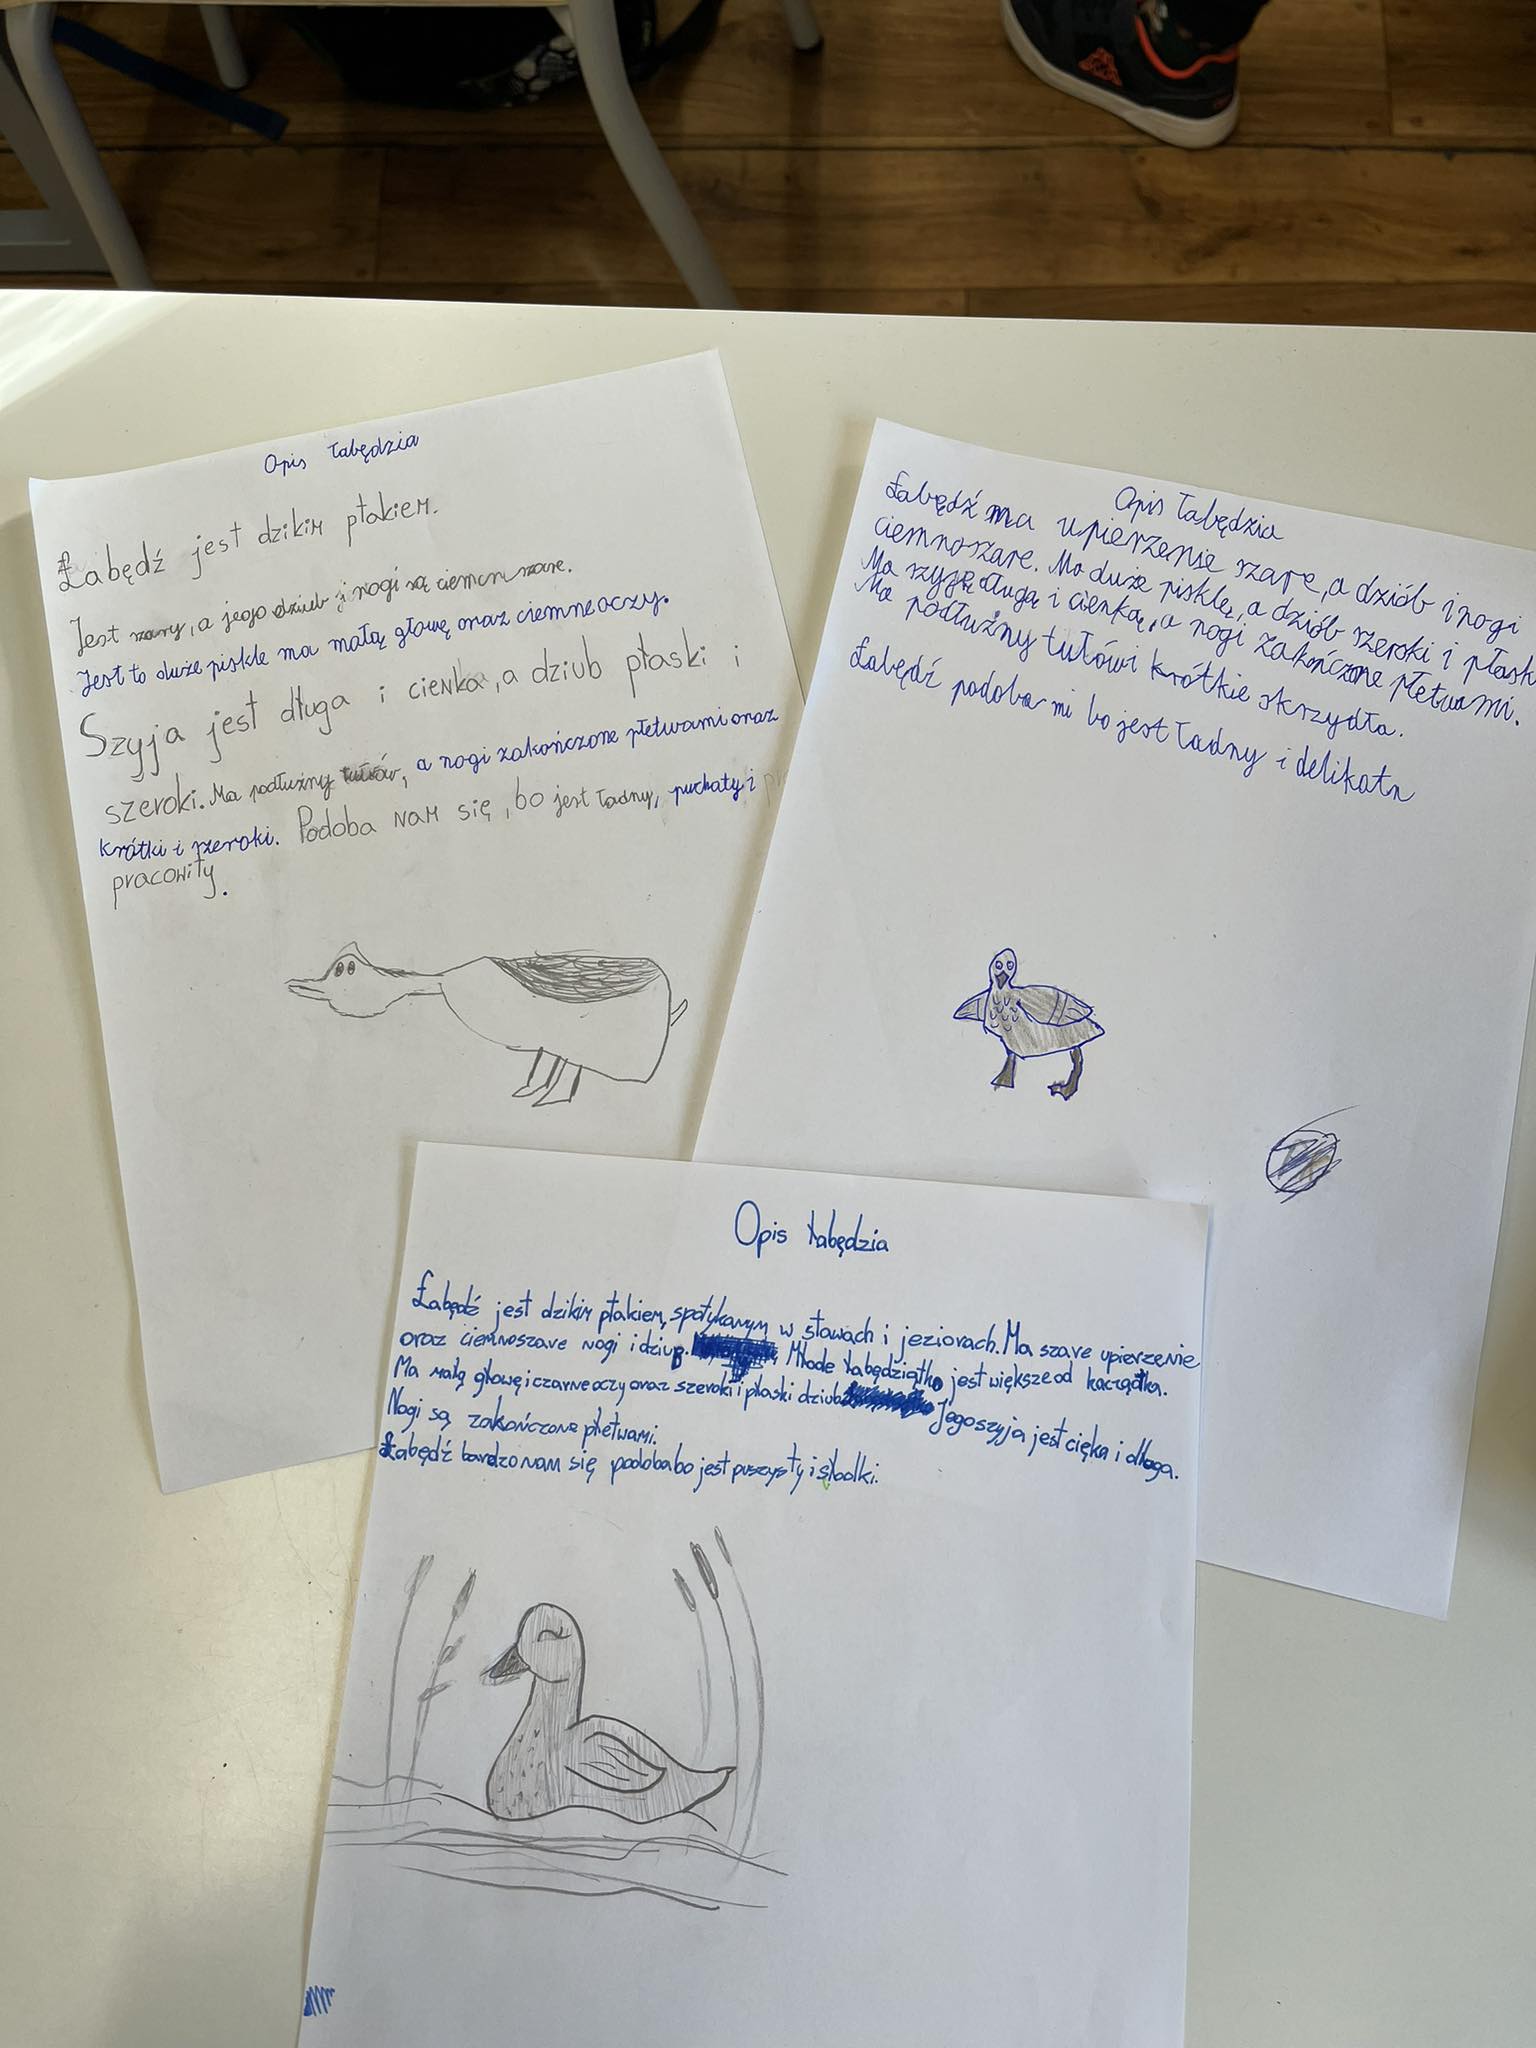 Opis łabędzia
Łabędź jest dzikim ptakiem.
Jest szary, a jego dziub i nogi są ciemnoszare.
Jest to duże piskle ma małą głowę oraz ciemne oczy.
Szyja jest długa i cienka, a dziub płaski i
szeroki. Ma podłużny tułów, a nogi zakończone płetwami oraz
krótki i szeroki. Podoba nam się, bo jest ładny, puchaty i
pracowity.
Opis łabędzia
Łabędź ma upierzenie szare, a dziób i nogi
ciemnoszare. Ma duże pisklę, a dziób szeroki i płask
Ma szyję długą i cienką, a nogi zakończone płetwami.
Ma podłużny tułów i krótkie skrzydła.
Łabędź podoba mi bo jest ładny i delikatn
Opis łabędzia
Łabędź jest dzikim ptakiem, spotykanym w stawach i jeziorach. Ma szare upierzenie
oraz ciemnoszare nogi i dziub. Młode łabędziątko jest większe od kaczątka.
Ma małą głowę i czarne oczy oraz szeroki i płaski dziub Jego szyja jest cięka i długa.
Nogi są zakończone płetwami.
Łabędź bardzo nam się podoba bo jest puszysty i słodki.